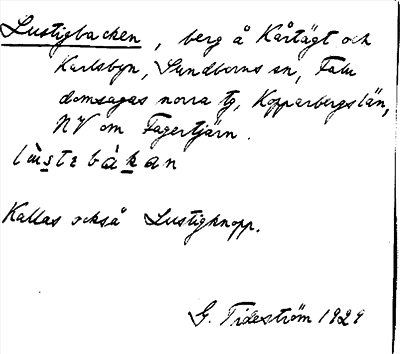 Lustigbacken, berg å Kårtägt och
Karlsbyn, Sundborns sn, Falu
domsagas norra tg, Kopparbergs län,
NV om Fagertjärn.
lùstɛbàkan
Kallas också Lustigknopp.
G. Tideström 1929